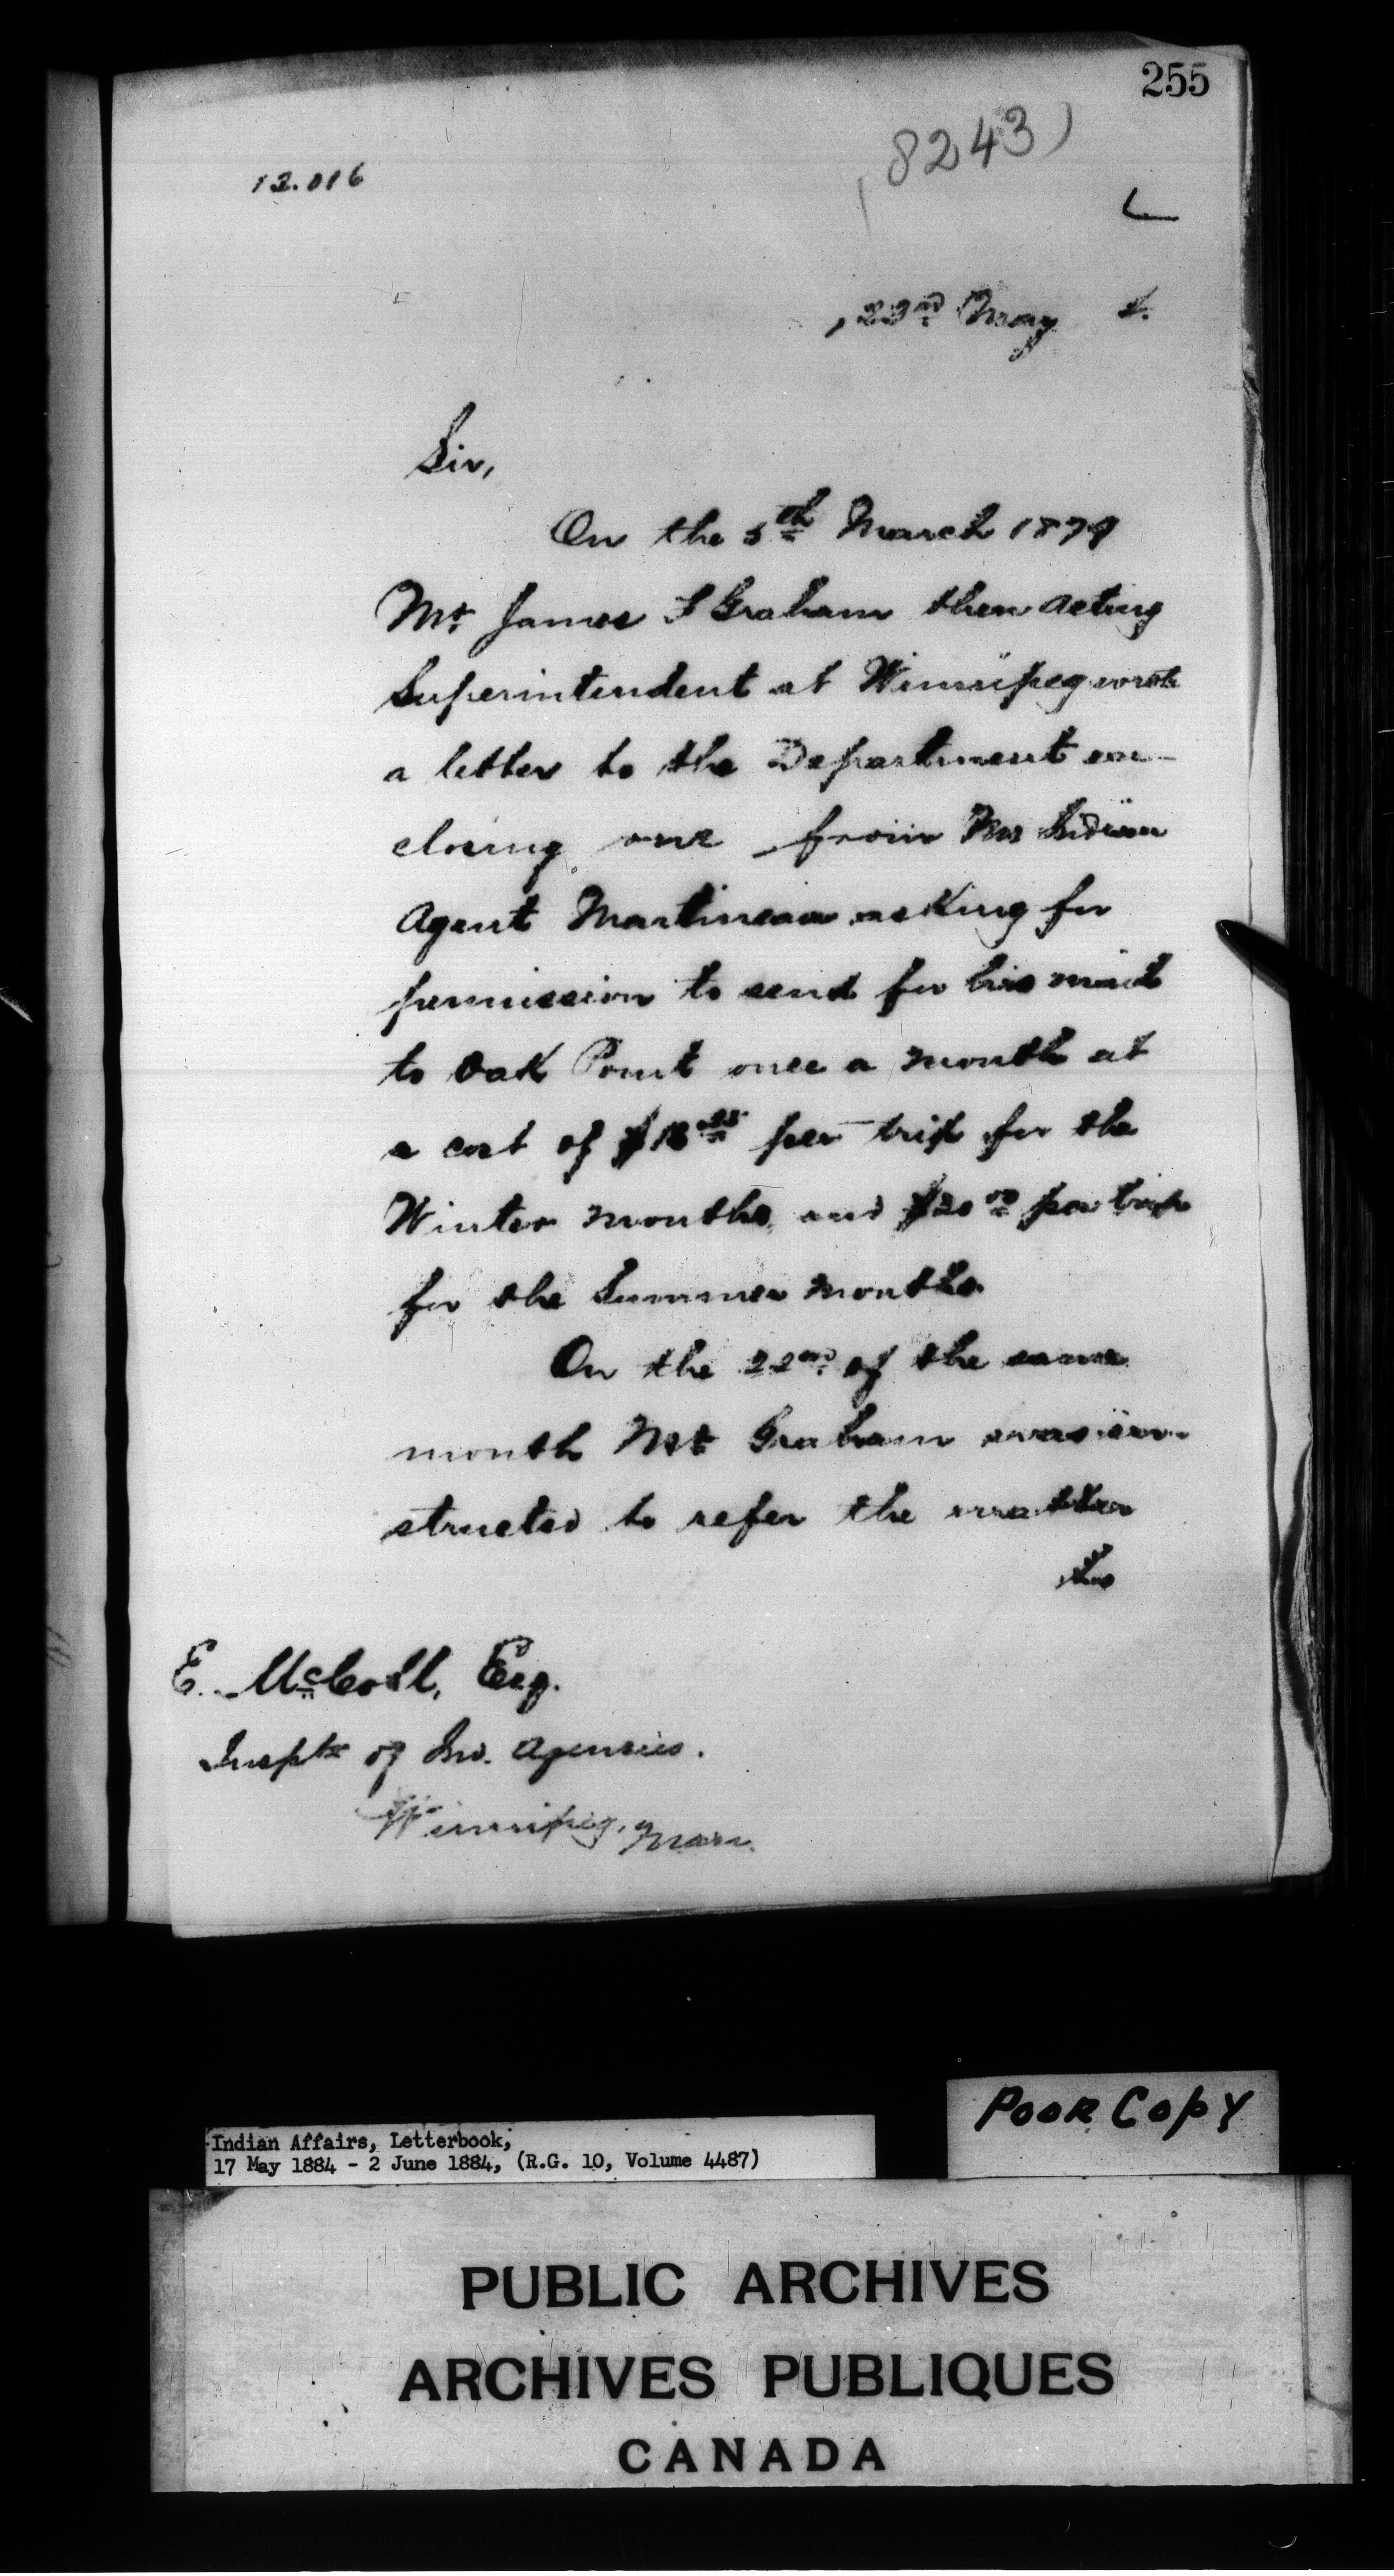 255
8243)
12.016
L
, 23rd May 4.
Sir,
On the 5th March 1879
Mr. James F Graham then acting
Superintendent at Winnipeg wrote
a letter to the Department en-
closing one from Mr Indian
Agent Martineau asking for
permission to send for his mail
to Oak Point once a month at
a cost of per trip for the
Winter months, and $20 00 per trip
for the Summer months.
On the 22nd of the same
month Mr Graham was in-
structed to refer the matter
to
E. McColl, Esq.
Inspt of Ind. Agencies.
Winnipeg, Man.
Poor Copy
Indian Affairs, Letterbook,
17 May 1884 - 2 June 1884, (R.G. 10, Volume 4487)
PUBLIC ARCHIVES
ARCHIVES PUBLIQUES
CANADA